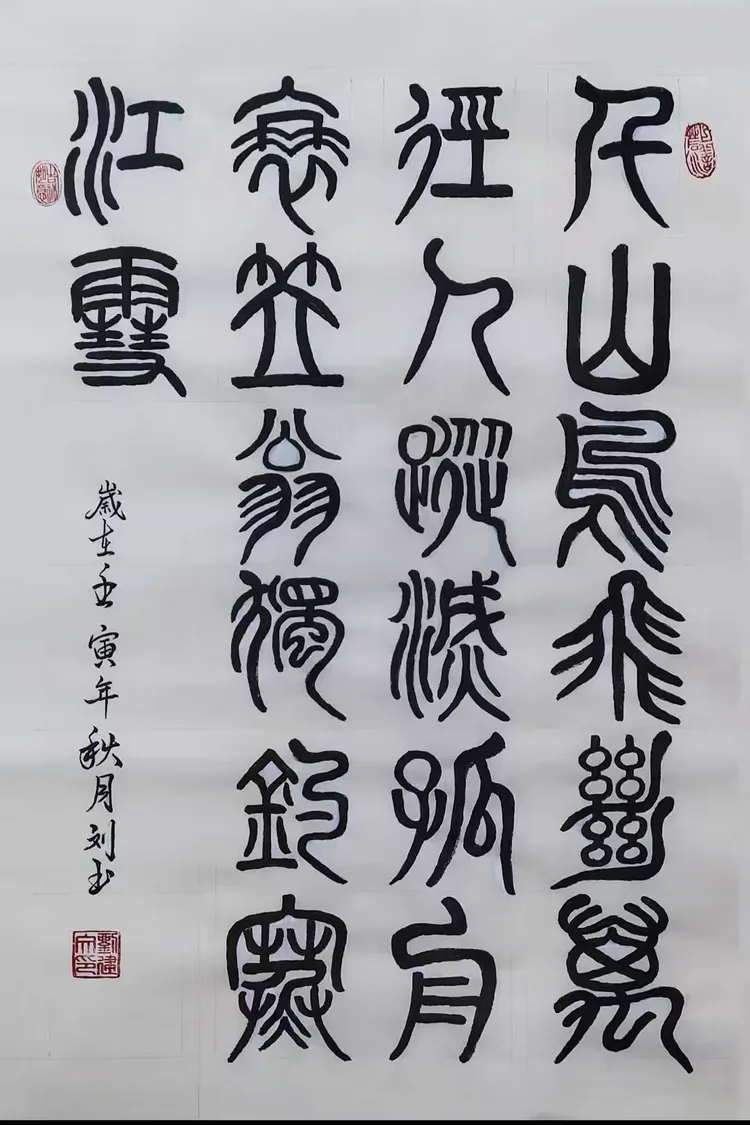 千山鳥飛絕萬
徑人蹤滅孤舟
蓑笠翁獨釣寒
江雪
歲在壬寅年秋月刘